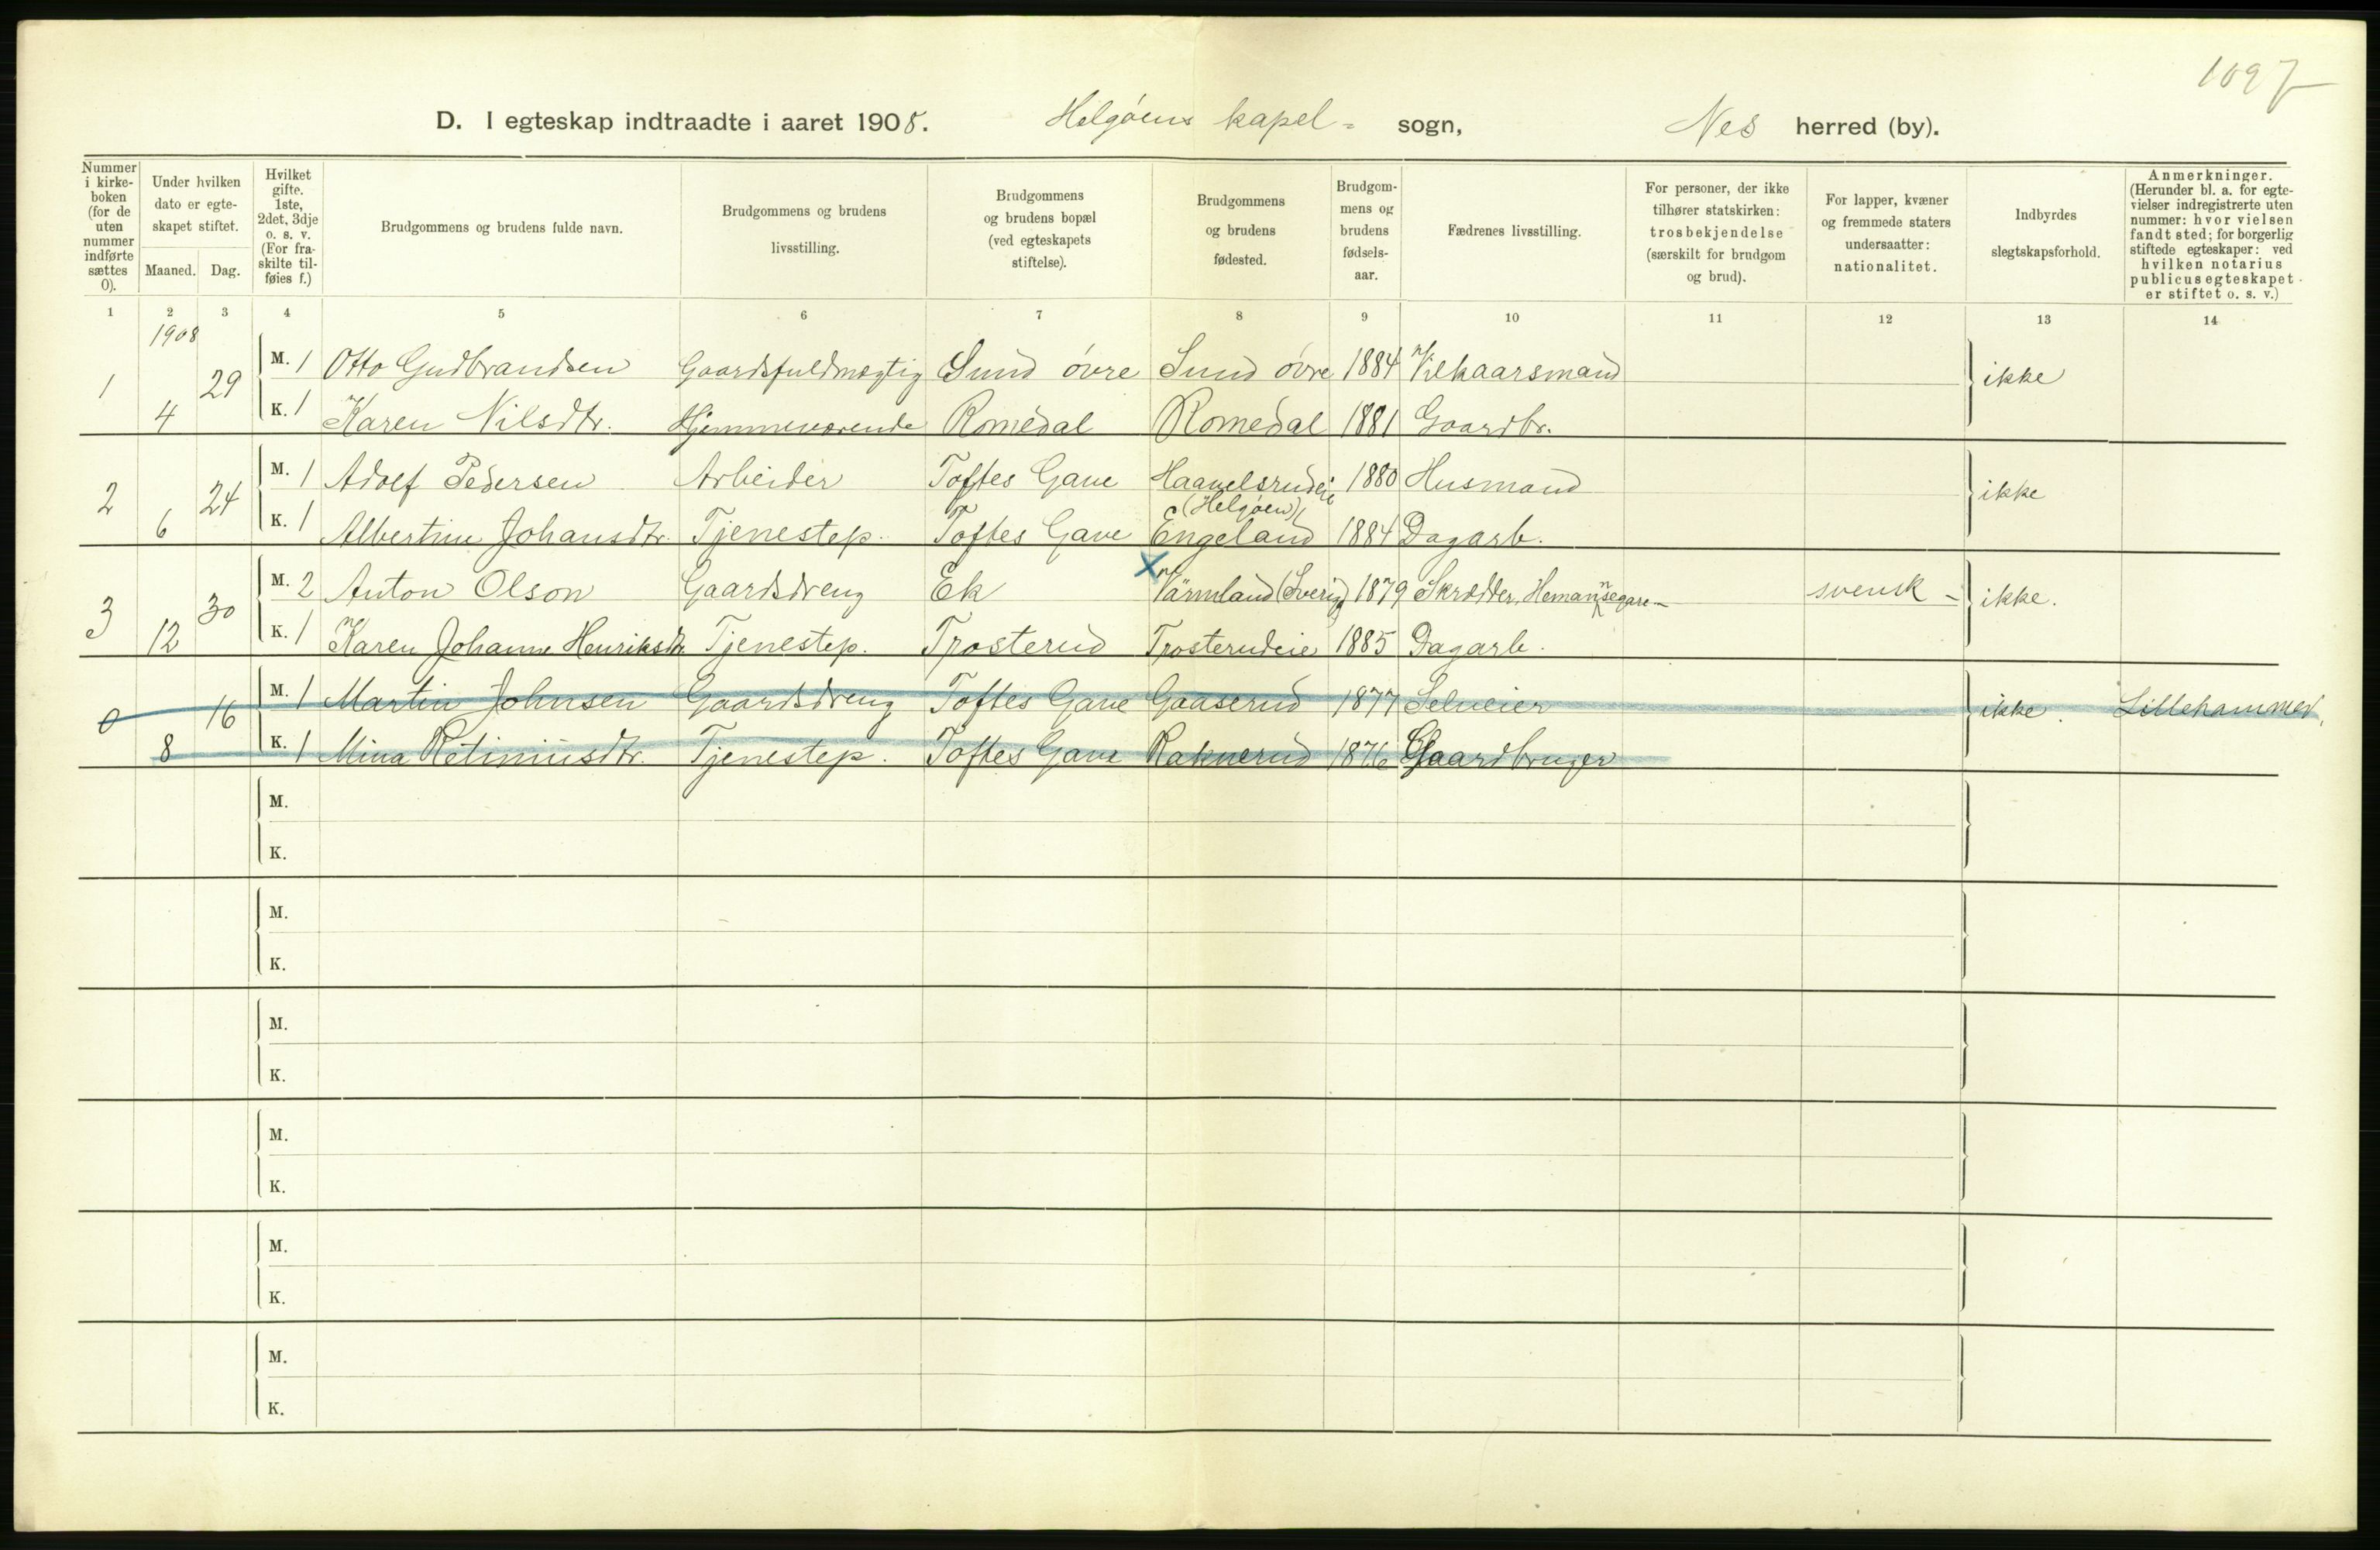 1097
D. I egteskap indtraadte i aaret 1908. Helgøens kapel- sogn, Nes herred (by).
Nummer i kirke-boken (for de uten nummer indførte sættes 0). Under hvilken dato er egte-skapet stiftet. Maaned. Dag. Hvilket gifte. 1ste, 2det, 3dje o. s. v. (For fra-skilte til-føies f.) Brudgommens og brudens fulde navn. Brudgommens og brudens livsstilling. Brudgommens og brudens bopæl (ved egteskapets stiftelse). Brudgommens og brudens fødested. Brudgom-mens og brudens fødsels-aar. Fædrenes livsstilling. For personer, der ikke tilhører statskirken: trosbekjendelse (særskilt for brudgom og brud). For lapper, kvæner og fremmede staters undersaatter: nationalitet. Indbyrdes slegtskapsforhold. Anmerkninger. (Herunder bl. a. for egte-vielser indregistrerte uten nummer: hvor vielsen fandt sted; for borgerlig stiftede egteskaper: ved hvilken notarius publicus egteskapet er stiftet o. s. v.)
1 2 3 4 5 6 7 8 9 10 11 12 13 14
1908
1 29 M. 1 Otto Gudbrandsen Gaardsfuldmægtig Sund øvre Sund øvre 1884 Vilkaarsmand ikke
4 K. 1 Karen Nilsdtr. Hjemmeværende Romedal Romedal 1881 Gaardbr.
2 24 M. 1 Adolf Pedersen Arbeider Toftes Gave Haavelsrudeie 1880 Husmand ikke
(Helgøen)
6 K. 1 Albertine Johansdtr. Tjenestep. Toftes Gave Engeland 1884 Dagarb.
3 30 M. 2 Anton Olson Gaardsdreng Ek X Värmland (Sverig) 1879 Skrædder, Hemannsegare svensk - ikke.
12 K. 1 Karen Johanne Henriksdtr Tjenestep. Trosterud Trosterudeie 1885 Dagarb.
0 16 M. 1 Martin Johnsen Gaardsdreng Toftes Gave Gaaserud 1877 Selveier ikke. Lillehammer,
8 K. 1 Mina Tjenestep. Toftes Gave Raknerud 1876 Gaardbruger
M.
K.
M.
K.
M.
K.
M.
K.
M.
K.
M.
K.